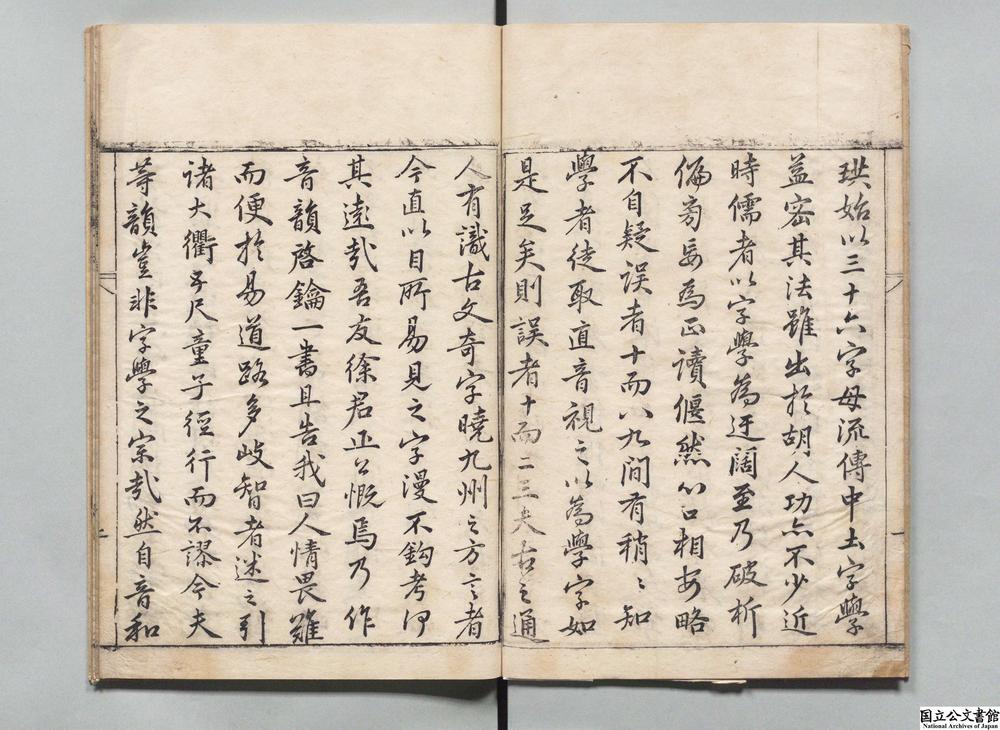 珙始以三十六字母流傳中土字學
益密其法雖出於胡人功亦不少近
時儒者以字學為迂闊至乃破析
偏旁妄為正讀偃然心口相安略
不自疑誤者十而八九間有稍〻知
學者徒取直音視之以為學字如
是足矣則誤者十而二三夫古之通
人有識古文奇字曉九州之方言者
今直以目所易見之字漫不鈎考何
其遠哉吾友徐君正公慨焉乃作
音韻啓鑰一書且告我曰人情畏難
而便於易道路多歧智者迷之引
諸大衢五尺童子徑行而不謬今夫
等韻豈非字學之宗哉然自音和
一
二
国立公文書館
National Archives of Japan